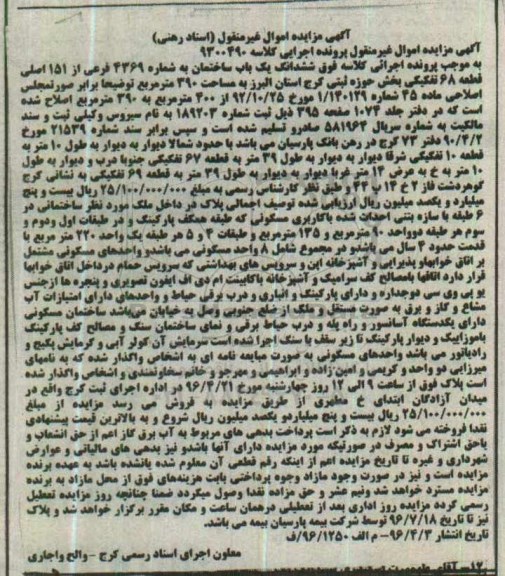 آگهی مزایده اموال غیرمنقول (اسناد رهنی)
آگهی مزایده اموال غیرمنقول پرونده اجرایی کلاسه ۹۳۰۰۴۹۰
به موجب پرونده اجرائی کلاسه فوق ششدانگ یک باب ساختمان به شماره ۴۳۶۹ فرعی از ۱۵۱ اصلی
قطعه ۶۸ تفکیکی بخش حوزه ثبتی کرج استان البرز به مساحت ۳۹۰ مترمربع توضیحا برابر صورتمجلس
اصلاحی ماده ۴۵ شماره ۱/۱۴۰۱۲۹ مورخ ۹۲/۱۰/۲۵ از ۴۰۰ مترمربع به ۳۹۰ مترمربع اصلاح شده
است که در دفتر جلد ۱۰۷۴ صفحه ۳۹۵ ذیل ثبت شماره ۱۸۹۲۰۳ به نام سیروس وکیلی ثبت و سند
مالکیت به شماره سریال ۵۸۱۹۶۳ صادرو تسلیم شده است و سپس برابر سند شماره ۲۱۵۳۹ مورخ
۹۰/۴/۲ دفتر ۷۳ کرج در رهن بانک پارسیان می باشد با حدود شمالا دیوار به دیوار به طول ۱۰ متر به
قطعه ۱۰ تفکیکی شرقا دیوار به دیوار به طول ۳۹ متر به قطعه ۶۷ تفکیکی جنوبا درب و دیوار به طول
۱۰ متر به خ به عرض ۱۴ متر غربا دیوار به دیوار به طول ۳۹ متر به قطعه ۶۹ تفکیکی به نشانی کرج
گوهردشت فاز ۲ خ ۱۴ پ ۴۳ و طبق نظر کارشناس رسمی به مبلغ ۲۵/۱۰۰/۰۰۰/۰۰۰ ریال بیست و پنج
میلیارد و یکصد میلیون ریال ارزیابی شده توصیف اجمالی پلاک در داخل ملک مورد نظر ساختمانی در
۶ طبقه با سازه بتنی احداث شده باکاربری مسکونی که طبقه همکف پارکینگ و در طبقات اول ودوم و
سوم هر طبقه دوواحد ۹۰ مترمربع و ۱۳۵ مترمربع و طبقات ۴ و ۵ هر طبقه یک واحد ۲۲۰ متر مربع با
قدمت حدود ۴ سال می باشدو در مجموع شامل ۸ واحد مسکونی می باشدو واحدهای مسکونی مشتمل
بر اتاق خوابهاو پذیرایی و آشپزخانه اپن و سرویس های بهداشتی که سرویس حمام درداخل اتاق خوابها
قرار دارد اتاقها بامصالح کف سرامیک و آشپزخانه باکابینت ام دی اف ایفون تصویری و پنجره ها ازجنس
یو پی وی سی دوجداره و دارای پارکینگ و انباری و درب برقی حیاط و واحدهای دارای امتیازات آب
مشاع و گاز و برق به صورت مستقل و ملک از ضلع جنوبی وصل به خیابان می باشد ساختمان مسکونی
دارای یکدستگاه آسانسور و راه پله و درب حیاط برقی و نمای ساختمان سنگ و مصالح کف پارکینگ
باموزاییک و دیوار پارکینگ تا زیر سقف با سنگ اجرا شده است سرمایش آن کولر آبی و گرمایش پکیج و
رادیاتور می باشد واحدهای مسکونی به صورت مبایعه نامه ای به اشخاص واگذار شده که به نامهای
میرزایی دو واحد و کریمی و امین زاده و ابراهیمی و مهرجو و خانم سخاوتمندی و اشخاص واگذار شده
است پلاک فوق از ساعت ۹ الی ۱۲ روز چهارشنبه مورخ ۹۶/۴/۲۱ در اداره اجرای ثبت کرج واقع در
میدان آزادگان ابتدای خ مطهری از طریق مزایده به فروش می رسد مزایده از مبلغ
۲۵/۱۰۰/۰۰۰/۰۰۰ ریال بیست و پنج میلیاردو یکصد میلیون ریال شروع و به بالاترین قیمت پیشنهادی
نقدا فروخته می شود لازم به ذکر است پرداخت بدهی های مربوط به آب برق گاز اعم از حق انشعاب و
یاحق اشتراک و مصرف در صورتیکه مورد مزایده دارای آنها باشدو نیز بدهی های مالیاتی و عوارض
شهرداری و غیره تا تاریخ مزایده اعم از اینکه رقم قطعی آن معلوم شده یانشده باشد به عهده برنده
مزایده است و نیز در صورت وجود مازاد وجوه پرداختی بابت هزینه‌های فوق از محل مازاد به برنده
مزایده مسترد خواهد شد ونیم عشر و حق مزاده نقدا وصول میگردد ضمنا چنانچه روز مزایده تعطیل
رسمی گردد مزایده روز اداری بعد از تعطیلی درهمان ساعت و مکان مقرر برگزار خواهد شد و پلاک
نیز تا تاریخ ۹۶/۷/۱۸ توسط شرکت بیمه پارسیان بیمه می باشد.
تاریخ انتشار ۹۶/۴/۳ - م الف ۹۶/۱۲۵۰/ف
معاون اجرای اسناد رسمی کرج - والح واجاری